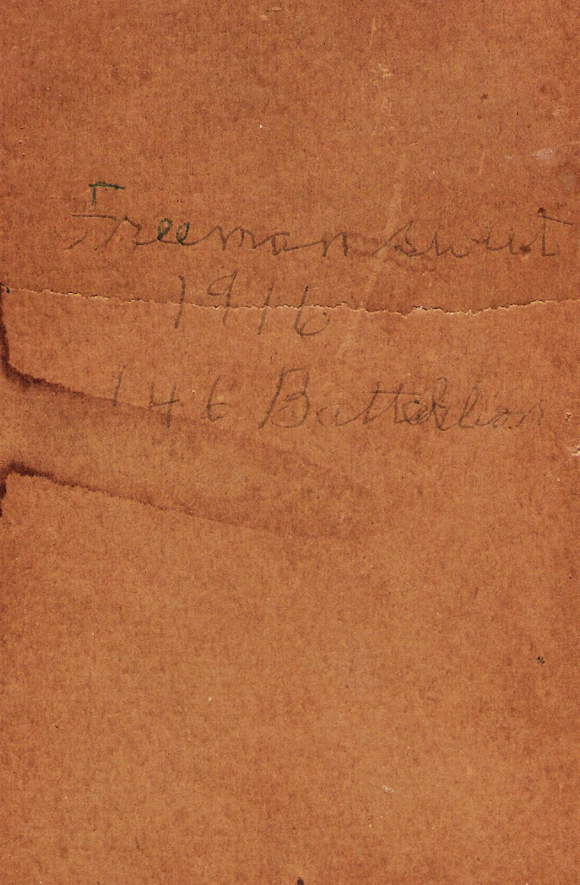 Freeman Sweet
1916
146 Battalion